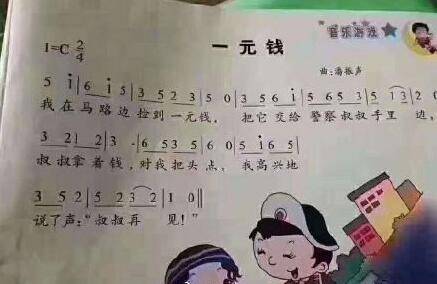 音乐游戏
一元钱
1=C 2/4
曲:潘振声
5 i | 6 i 5 | 3 5 2 3 | 5 0 | 3 5 6 i | 5 6 5 3 | 5 1 3 | 2 0
我在马路边捡到一元钱, 把它交给警察叔叔手里边,
3 2 2 | 3 · | 6 5 3 5 | 6 0 | 5 i 6 5 |
叔叔拿着钱,对我把头点, 我高兴地
3 5 2 | 5 2 3 2 | 1 0 ||
说了声:“叔叔再见!”